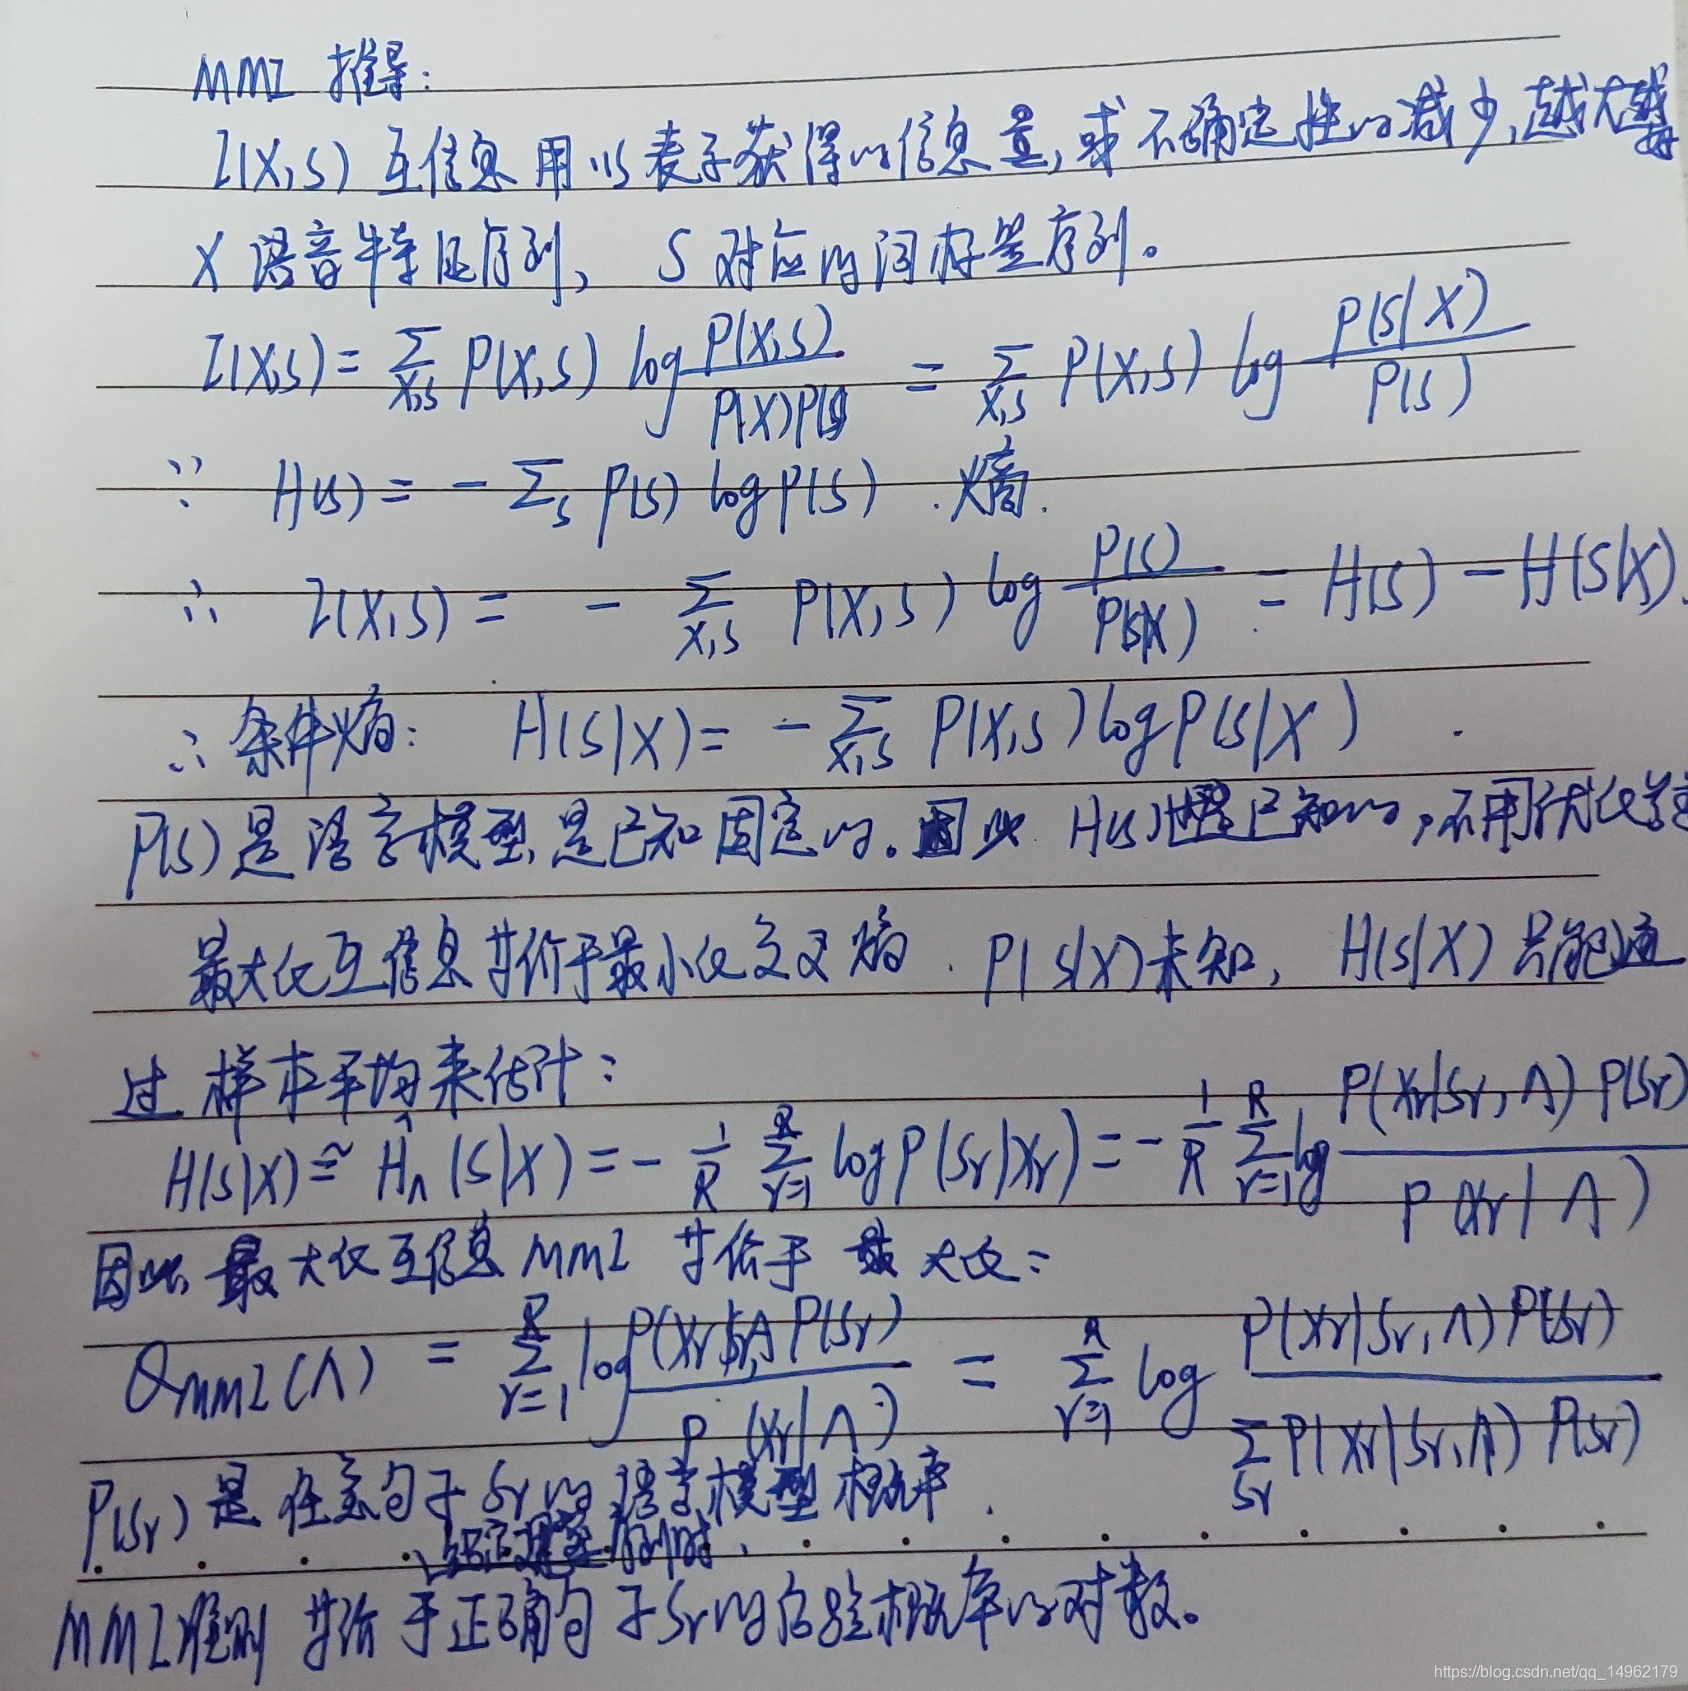 MMI 推导:
I(X,S) 互信息 用以表示获得的信息量,或不确定性的减少,越大越好
X 语音特征序列, S 对应的词标签序列。
I(X,S) = Σ_{X,S} P(X,S) log P(X,S) / P(X)P(S) = Σ_{X,S} P(X,S) log P(S|X) / P(S)
∵ H(S) = - Σ_S P(S) log P(S) . 熵.
∴ I(X,S) = - Σ_{X,S} P(X,S) log P(S) / P(S|X) = H(S) - H(S|X).
∴ 条件熵: H(S|X) = - Σ_{X,S} P(X,S) log P(S|X) .
P(S) 是语言模型,是已知固定的。因此 H(S)也是已知的,不用优化
最大化互信息等价于最小化交叉熵. P(S|X)未知, H(S|X) 只能通
过 样本平均来估计:
H(S|X) ≅ Ĥ_Λ (S|X) = - 1/R Σ_{r=1}^{R} log P(Sr|Xr) = - 1/R Σ_{r=1}^{R} log P(Xr|Sr,Λ) P(Sr) / P(Xr|Λ)
因此 最大化互信息 MMI 等价于 最大化:
Q_{MMI}(Λ) = Σ_{r=1}^{R} log P(Xr|Sr,Λ) P(Sr) / P(Xr|Λ) = Σ_{r=1}^{R} log P(Xr|Sr,Λ) P(Sr) / Σ_{Sr} P(Xr|Sr,Λ) P(Sr)
P(Sr) 是任意句子 Sr 的语言模型概率.
序列时,
MMI准则 等价于正确句子Sr的后验概率的对数。
https://blog.csdn.net/qq_14962179